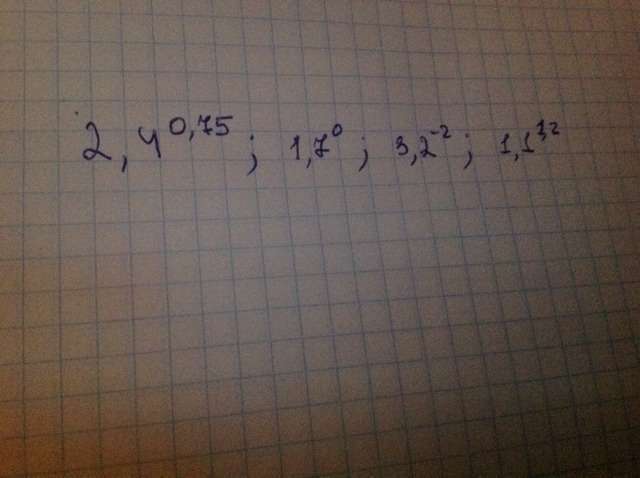 2,4^0,75 ; 1,7^0 ; 3,2^-2 ; 1,1^3,2